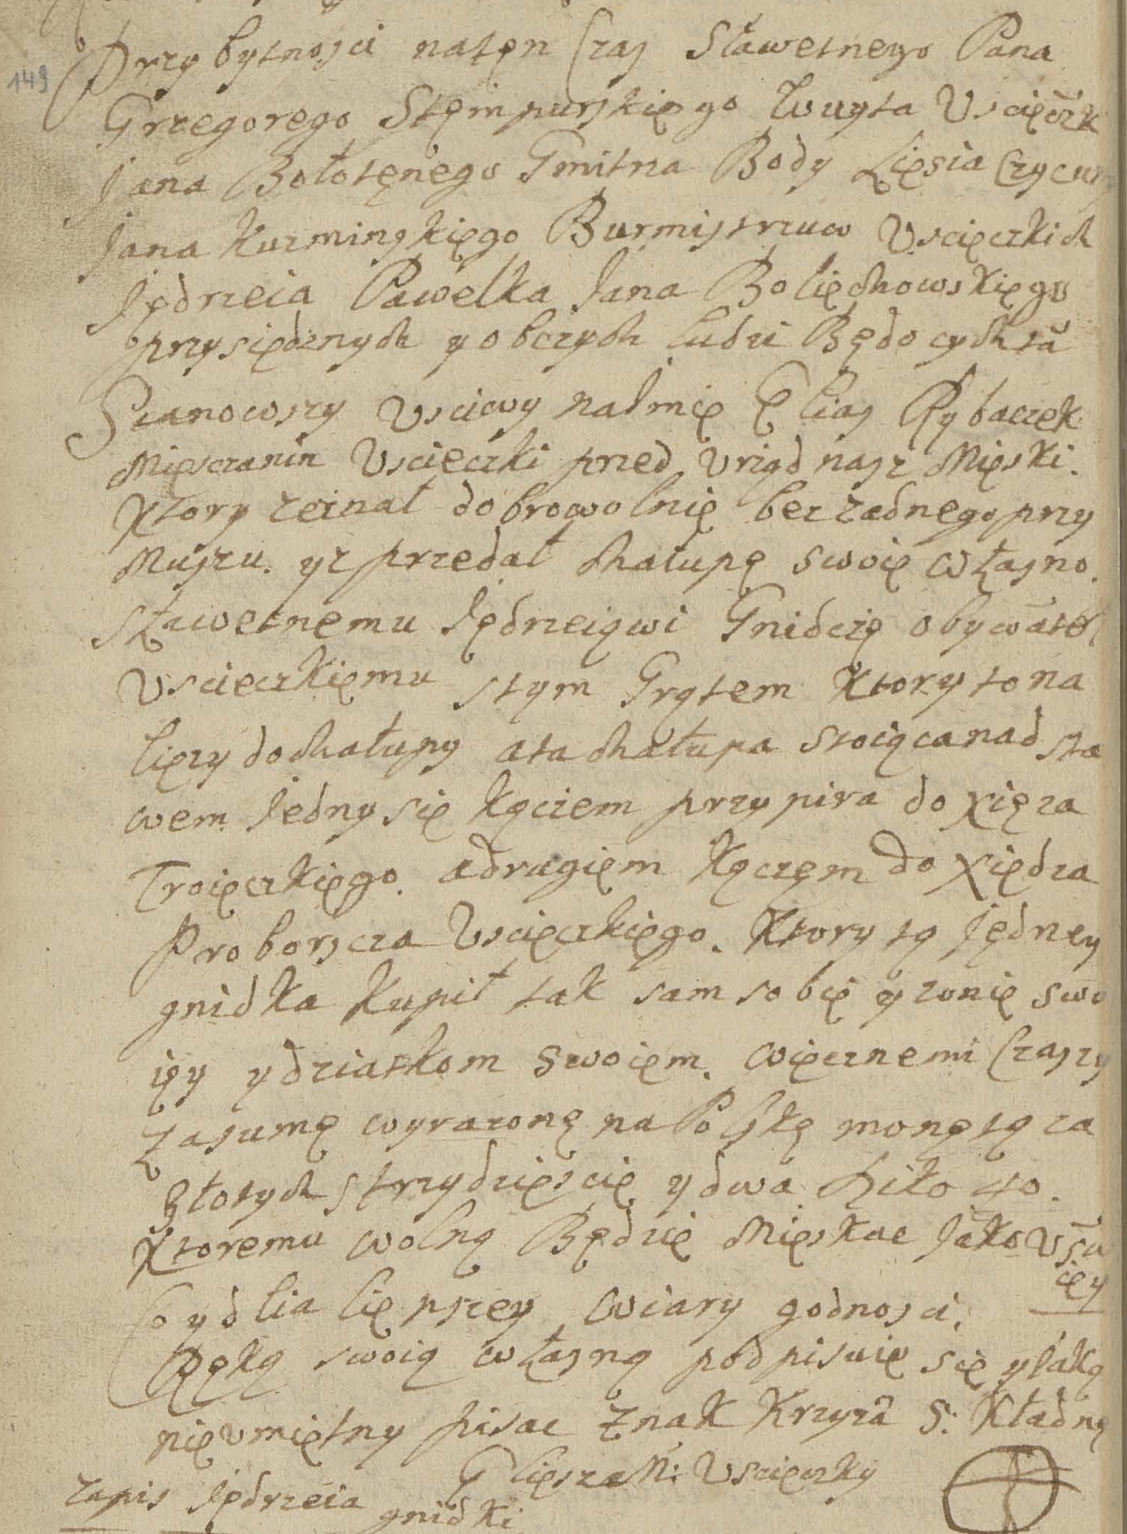 149
Przybytnosci natęn Czas Sławetnego Pana
Grzegorego Stęmpurskięgo Woyta Uscięczk
Jana Bołotęnego Gmitna Body Lięsia
Jana Kuzminskięgo Burmistrzuw Uscięczkich
Jędrzeia Pawełka Jana Bolięchowskięgo
przysiężnych y obczych ludzi Będocych ta
Stanowszy Usciwy naimię Elias Rybaczek
Mięsczanin Uscięczki przed Uriąd nasz Mięski.
Ktory zeznał dobrowolnię bez żadnego przy
Muszu. yz przedał Chałupę swoię własno.
sławetnemu Jędrzeiowi Gnidczę obywatel
Uscieczkięmu stym Grątem Ktory to na
lięzy do Chałupy ata Chałupa stoiąca nad sta
wem Jedny się kączem przypira do Xięza
Troięczkięgo. adrugięm kączem do Xiędza
Proborscza Uscięczkięgo. Ktory tą Jędney
gnidka Kupił tak sam sobię y zonię swo
ięy y dziatkom swoięm. więcznemi Czaszy
Zasumę wyrazonę na Polskę monętą za
złotych strzydzięscię y dwa 40.
Ktoremu wolną Będzię Mięskac Jako U swo
ięy
Co y dlia liępszey wiary godnosci.
Ręką swoią własną podpisuię się y Jako
nięumiętny pisac znak Krzyża S: Kładnę
Elięsza M: Uscięczky
zapis Jędrzeia gnidki